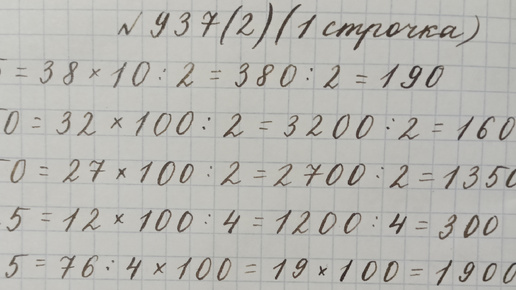 № 937(2) (1 строчка)
5 = 38 × 10 : 2 = 380 : 2 = 190
0 = 32 × 100 : 2 = 3200 : 2 = 160
0 = 27 × 100 : 2 = 2700 : 2 = 1350
5 = 12 × 100 : 4 = 1200 : 4 = 300
5 = 76 : 4 × 100 = 19 × 100 = 1900